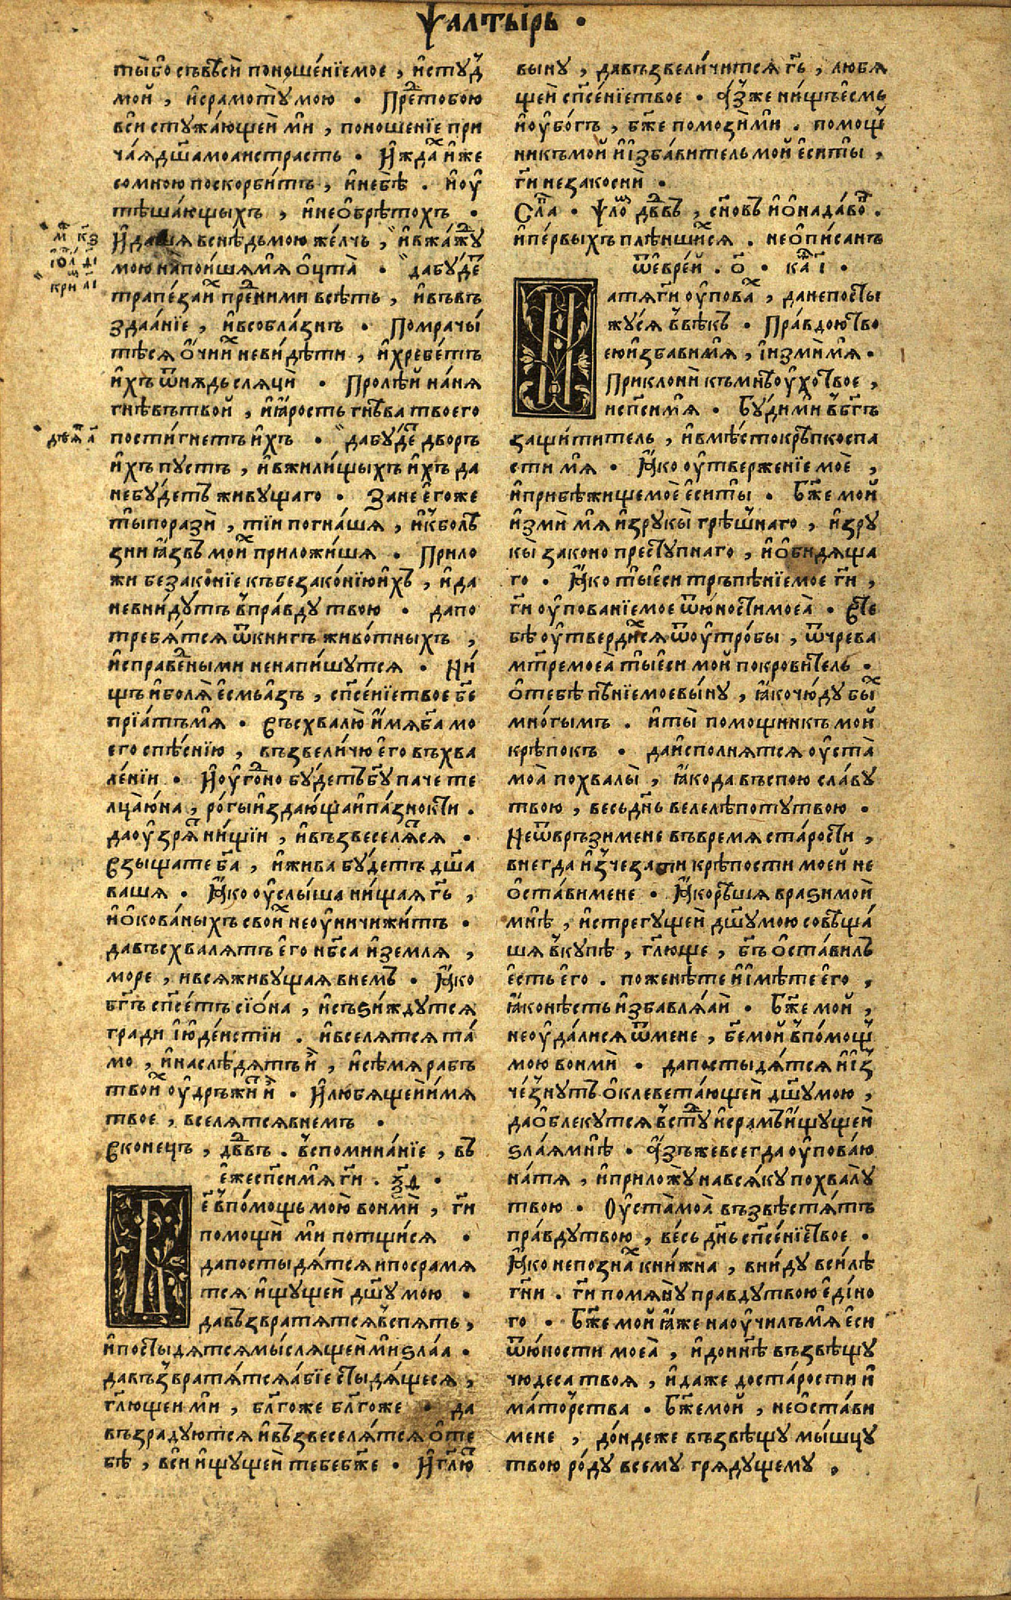 Ѱалтырь ·
ты бо съвѣси поношенїе мое , и студ
мой , и срамоту мою · Пред тобою
вси стужающеи ми , поношенїе при
чая дша моа и страсть · И ждах иже
со мною поскорбитъ , и не бѣ . и оу
тѣшающыхъ , и не обрѣтохъ ·
И даша в снѣдь мою желчь , и в жажду
мою напоиша мя оцта · да буде
трапеза их пред ними в сѣть , и въ въ
здаанїе , и в соблазнъ · Помрачы
тѣся очи их не видѣти , и хребетъ
ихъ ѿнждь сляцы · Пролѣй на ня
гнѣвъ твой , и ярость гнѣва твоего
постигнетъ ихъ · да буде дворъ
ихъ пустъ , и в жилищыхъ ихъ да
не будетъ живущаго · Зане егоже
ты порази , тїи погнаша , и къ болѣ
зни язвъ моих приложиша · Прило
жи безаконїе къ безаконїю ихъ , и да
не внидутъ в правду твою · да по
требятся ѿ книгъ животныхъ ,
и с праведными не напишутся · Ни
щъ и боля есмь азъ , спсенїе твое бже
прїатъ мя · Въсхвалю имя бга мо
его с пѣснїю , възвеличю его въ хва
ленїи · И оугодно будетъ бгу паче те
лца юна , рогы издающа и пазнокти .
да оузрят нищїи , и възвеселятся ·
Взыщате бга , и жива будетъ дша
ваша · Яко оуслыша нищая гь ,
и окованыхъ своих не оуничижитъ ·
да въсхвалятъ его нбса и земля ,
море , и вся живущая в немъ · Яко
бгъ спсетъ сїона , и съзиждутся
гради июдеистїи . и вселятся та
мо , и наслѣдятъ и , и сѣмя рабъ
твоих оудръжит и · И любящеи имя
твое , вселятся в немъ ·
В конецъ , двдвъ . въспоминанїе , въ
еже спси мя ги . ѯд ·
Бе в помощь мою вонми , ги
помощи ми потщися ·
да постыдятся и посрамя
тся ищущеи дшу мою ·
да възвратятся вспять ,
и постыдятся мыслящеи ми злаа ·
да възвратятся абїе стыдящеся ,
глющеи ми , блгоже блгоже · да
възрадуются и възвеселятся о те
бѣ , вси ищущеи тебе бже · И глют
выну , да възвеличится гь , любя
щеи спсенїе твое · Аз же нищъ есмь
и оубогъ , бже помози ми . помощ
никъ мой и избавитель мой еси ты ,
ги не закосни ·
Сла · Ѱалом двдвъ , сновъ ионадавов .
и первыхъ плѣншихся . неописанъ
ѿ еврей . о · каѳ і ·
На тя ги оуповах , да не посты
жуся в вѣкъ · Правдою тво
ею избави мя , и изми мя ·
Приклони къ мнѣ оухо твое ,
и спси мя · Буди ми в бгъ
защититель , и в мѣсто крѣпко спа
сти мя · Яко оутверженїе мое ,
и прибѣжище мое еси ты · Бже мой
изми мя из рукы грѣшнаго , из ру
кы законо преступнаго , и обидяща
го · Яко ты еси тръпѣнїе мое ги ,
ги оупованїе мое ѿ юности моеа · В те
бѣ оутвердихся ѿ оутробы , ѿ чрева
мтре моеа ты еси мой покровитель ·
о тебѣ пѣнїе мое выну , яко чюду бых
многымъ . и ты помощникъ мой
крѣпокъ · да исполнятся оуста
моа похвалы , яко да въспою славу
твою , весь днь велелѣпоту твою ·
Не ѿвръзи мене въ время старости ,
внегда изчезати крѣпости моей не
остави мене · Яко рѣша врази мои
мнѣ , и стрегущеи дшу мою совѣща
ша вкупѣ , глюще , бгъ оставилъ
есть его . поженѣте и имѣте его ,
яко нѣсть избавляяй · Бже мой ,
не оудалися ѿ мене , бже мой в помощ
мою вонми · да постыдятся и из
чезнутъ оклеветающеи дшу мою ,
да облекутся в студ и срамъ ищущеи
злая мнѣ · Азъ же всегда оуповаю
на тя , и приложу на всяку похвалу
твою · Оуста моа възвѣстятъ
правду твою , весь днь спсенїе твое ·
Яко не познах книжна , вниду в силѣ
гни . ги помяну правду твою едіно
го · Бже мой яже наоучилъ мя еси
ѿ юности моеа , и до ннѣ възвѣщу
чюдеса твоя , и даже до старости и
маторства · Бже мой , не остави
мене , дондеже възвѣщу мышцу
твою роду всему грядущему ,